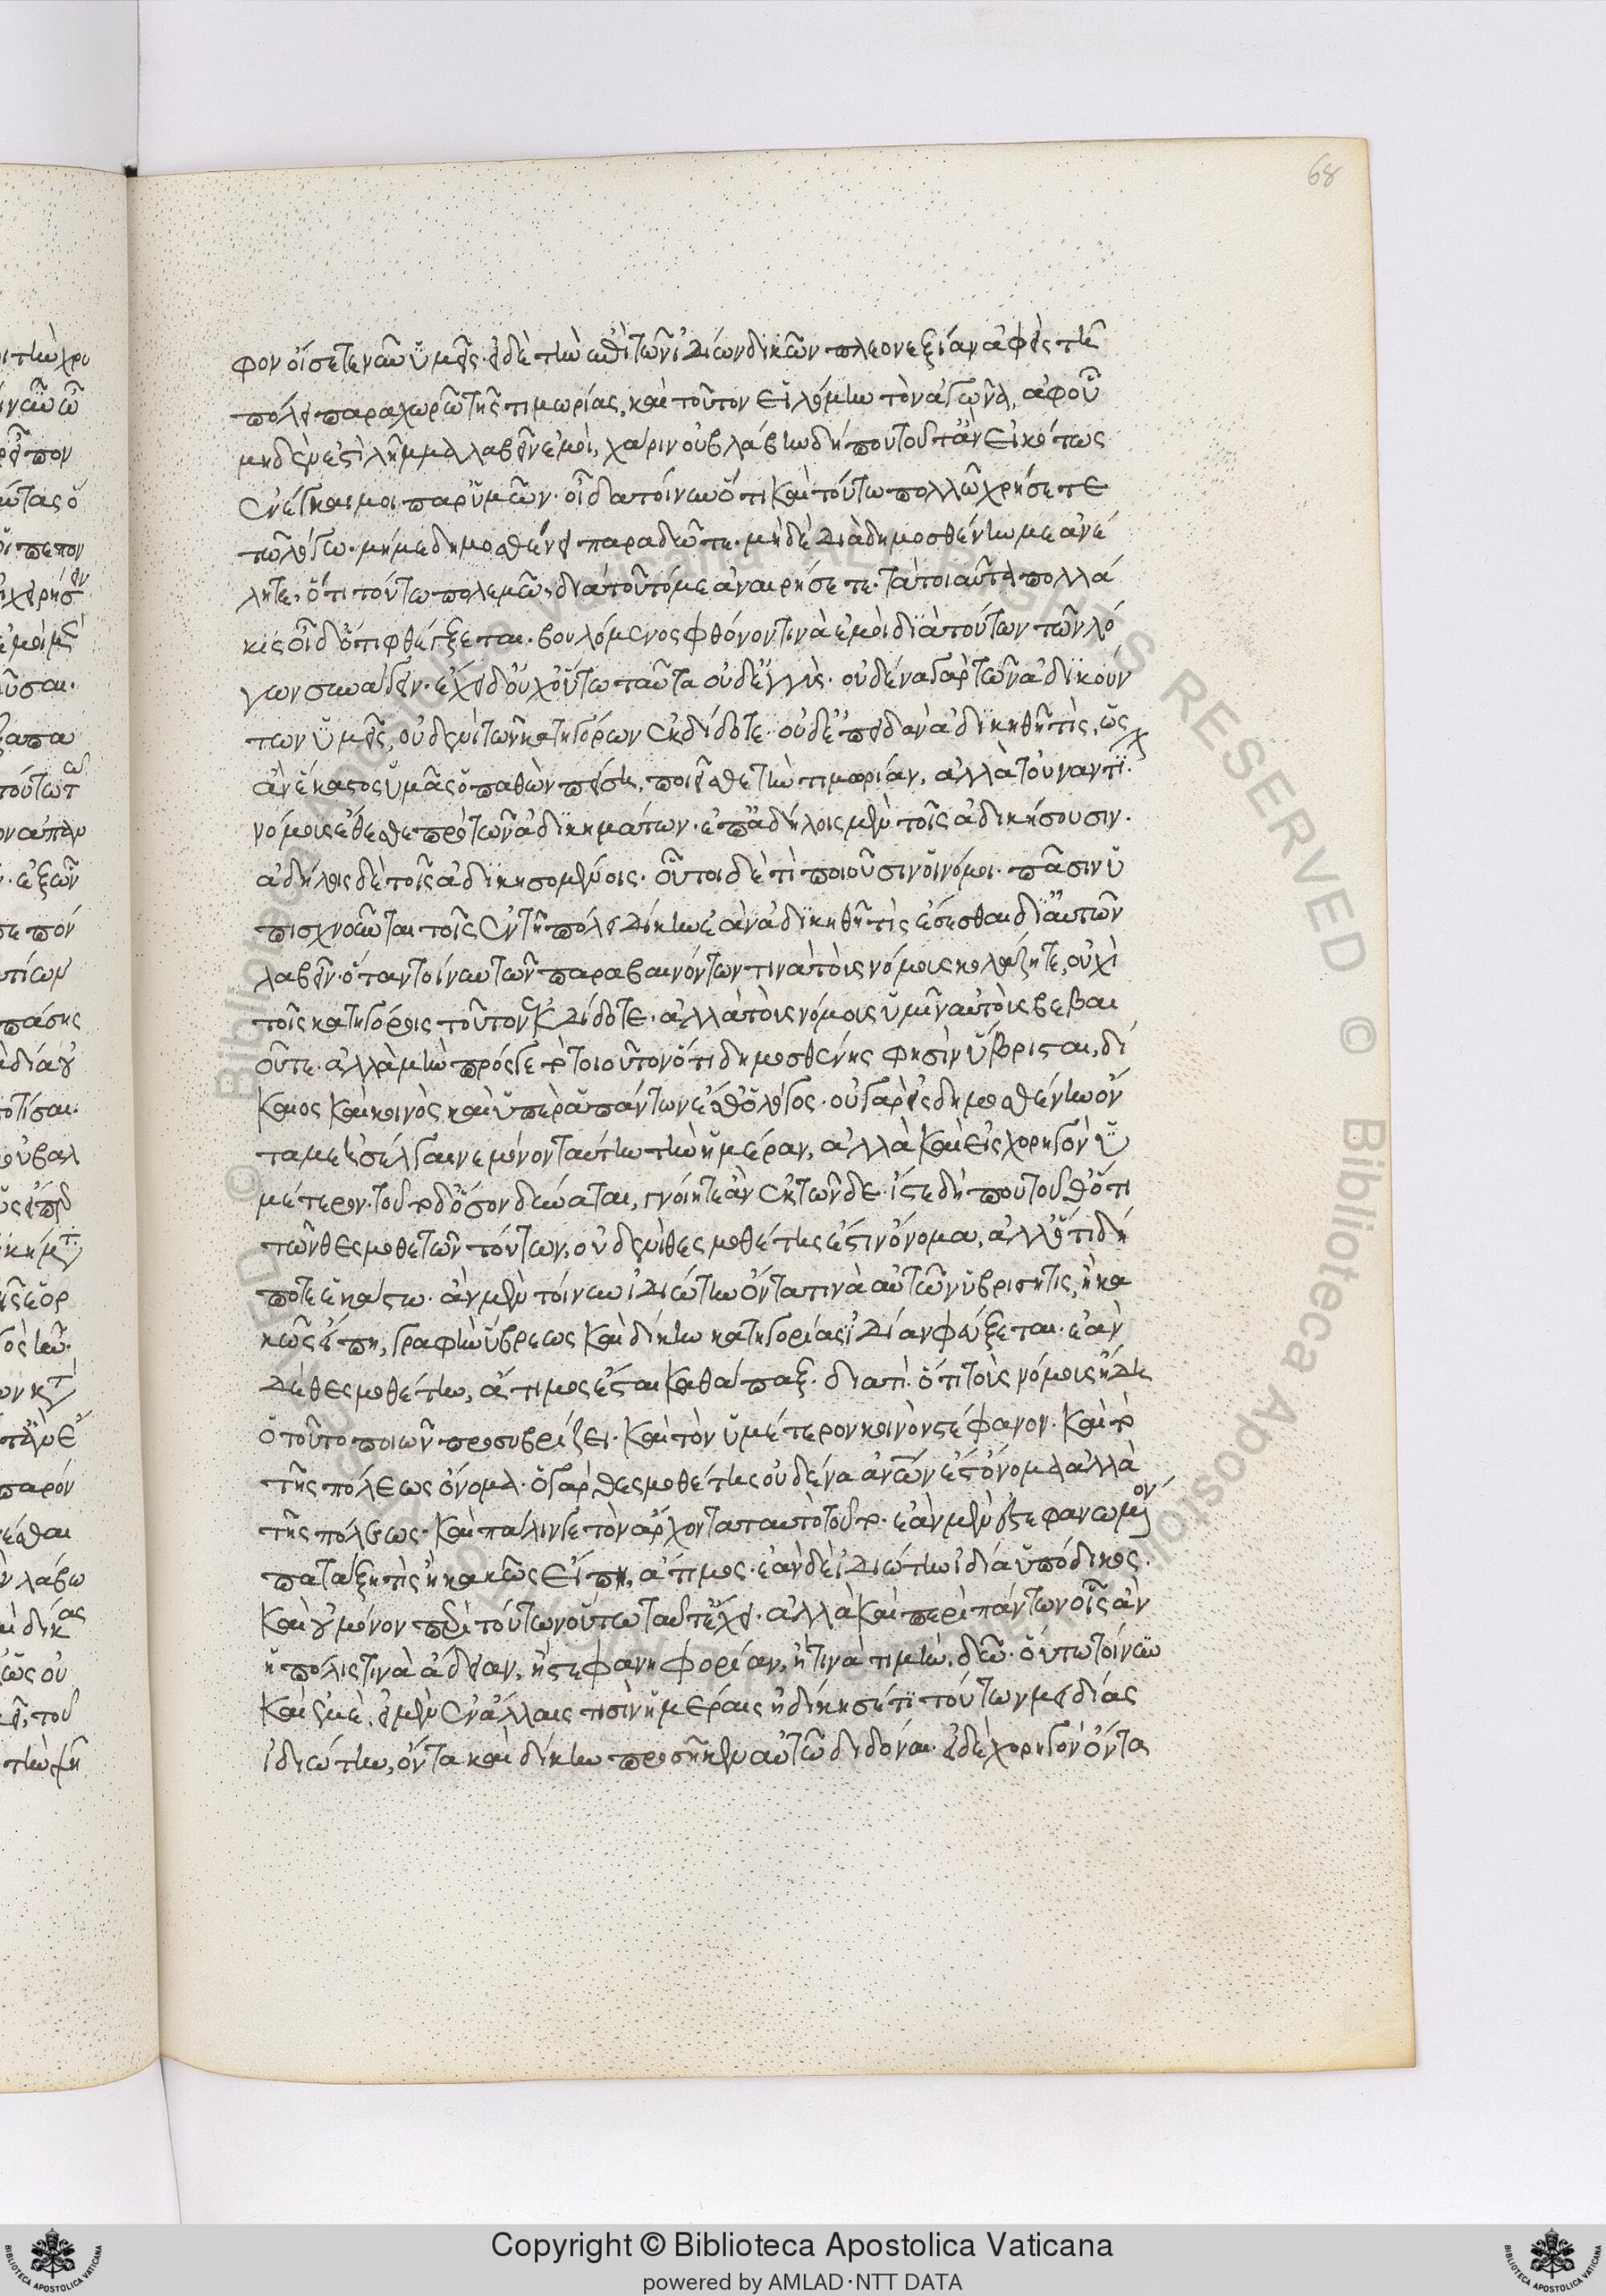 68
φον οἴσετε νῦν ὑμεῖς· εἰ δὲ τὴν ἐπὶ τῶν ἰδίων δικῶν πλεονεξίαν ἀφεὶς τῇ
πόλει παραχωρῶ τῆς τιμωρίας, καὶ τοῦτον εἱλόμην τὸν ἀγῶνα, ἀφ' οὗ
μηδὲν ἐστὶ λῆμμα λαβεῖν ἐμοὶ, χάριν οὐ βλάβην δήπου τοῦτ' ἂν εἰκότως
ἐνέγκαι μοι παρ' ὑμῶν. οἶδα τοίνυν ὅτι καὶ τούτω πολλῶ χρήσεται
τῶ λόγω. μή με δημοσθένει παραδῶτε. μηδὲ διὰ δημοσθένην με ἀνέ
λητε. ὅτι τούτω πολεμῶ, διὰ τοῦτό με ἀναιρήσετε. τὰ τοιαῦτα πολλά
κις οἶδ' ὅτι φθέγξεται. βουλόμενος φθόνον τινὰ ἐμοὶ διὰ τούτων τῶν λό
γων συνάγειν. ἔχει δ' οὐχ οὕτω ταῦτα οὐδ' ἐγγύς. οὐδένα γὰρ τῶν ἀδικούν
των ὑμεῖς, οὐδενὶ τῶν κατηγόρων ἐκδίδοτε. οὐδ' ἐπειδὰν ἀδικηθῇ τὶς, ὡς
ἂν ἕκαστος ὑμᾶς ὁ παθὼν πείσῃ, ποιεῖσθε τὴν τιμωρίαν, ἀλλὰ τοὐναντί.
νόμοις ἔθεσθε πρὸ τῶν ἀδικημάτων. ἐπ' ἀδήλοις μὲν τοῖς ἀδικήσουσιν.
ἀδήλοις δὲ τοῖς ἀδικησομένοις. οὗτοι δὲ τί ποιοῦσιν οἱ νόμοι. πᾶσιν ὑ
πισχνοῦνται τοῖς ἐν τῇ πόλει δίκην ἐὰν ἀδικηθῇ τὶς ἔσεσθαι δι' αὐτῶν
λαβεῖν. ὅταν τοίνυν τῶν παραβαινόντων τινὰ τοὺς νόμους κολάζητε, οὐχὶ
τοῖς κατηγόροις τοῦτον ἐκδίδοτε. ἀλλὰ τοὺς νόμους ὑμῖν αὐτοῖς βεβαι
οῦτε. ἀλλὰ μὴν πρός γε τὸ τοιοῦτον ὅτι δημοσθένης φησὶν ὕβρισται, δί
καιος καὶ κοινὸς καὶ ὑπὲρ ἁπάντων ἐσθ' ὁ λόγος. οὐ γὰρ εἰς δημοσθένην ὄν
τα με ἠσέλγαινε μόνον ταύτην τὴν ἡμέραν, ἀλλὰ καὶ εἰς χορηγὸν ὑ
μέτερον. τοῦτο δ' ὅσον δύναται, γνοίητε ἂν ἐκ τῶνδε. ἴστε δήπου τοῦθ' ὅτι
τῶν θεσμοθετῶν τούτων, οὐδενὶ θεσμοθέτης ἐστὶν ὄνομα, ἀλλ' ὅτι δή
ποτε ἑκάστω. ἂν μὲν τοίνυν ἰδιώτην ὄντα τινὰ αὐτῶν ὑβρίσῃ τις, ἢ κα
κῶς εἴπῃ, γραφὴν ὕβρεως καὶ δίκην κατηγορίας ἰδίαν φεύξεται. ἐὰν
δὲ θεσμοθέτην, ἄτιμος ἔσται καθάπαξ. διατί. ὅτι τοὺς νόμους ἤδη
ὁ τοῦτο ποιῶν προσυβρίζει. καὶ τὸν ὑμέτερον κοινὸν στέφανον. καὶ τὸ
τῆς πόλεως ὄνομα. ὁ γὰρ θεσμοθέτης οὐδενὸς ἀνθρώπων ἔστ' ὄνομα ἀλλὰ
τῆς πόλεως. καὶ πάλιν γε τὸν ἄρχοντα ταυτὸ τοῦτο. ἐὰν μὲν ἐστεφανωμένον
πατάξῃ τὶς ἢ κακῶς εἴπῃ, ἄτιμος. ἐὰν δὲ ἰδιώτην ἰδία ὑπόδικος.
καὶ οὐ μόνον περὶ τούτων οὕτω ταῦτ' ἔχει. ἀλλὰ καὶ περὶ πάντων οἷς ἂν
ἡ πόλις τινὰ ἄδειαν, ἢ στεφανηφορίαν, ἤ τινα τιμὴν, δῶ. οὕτω τοίνυν
καὶ ἐμὲ, εἰ μὲν ἐν ἄλλαις τισὶν ἡμέραις ἠδίκησέ τι τούτων μειδίας
ἰδιώτην, ὄντα καὶ δίκην προσῆκεν αὐτῶ διδόναι. εἰ δὲ χορηγὸν ὄντα
Copyright © Biblioteca Apostolica Vaticana
powered by AMLAD·NTT DATA